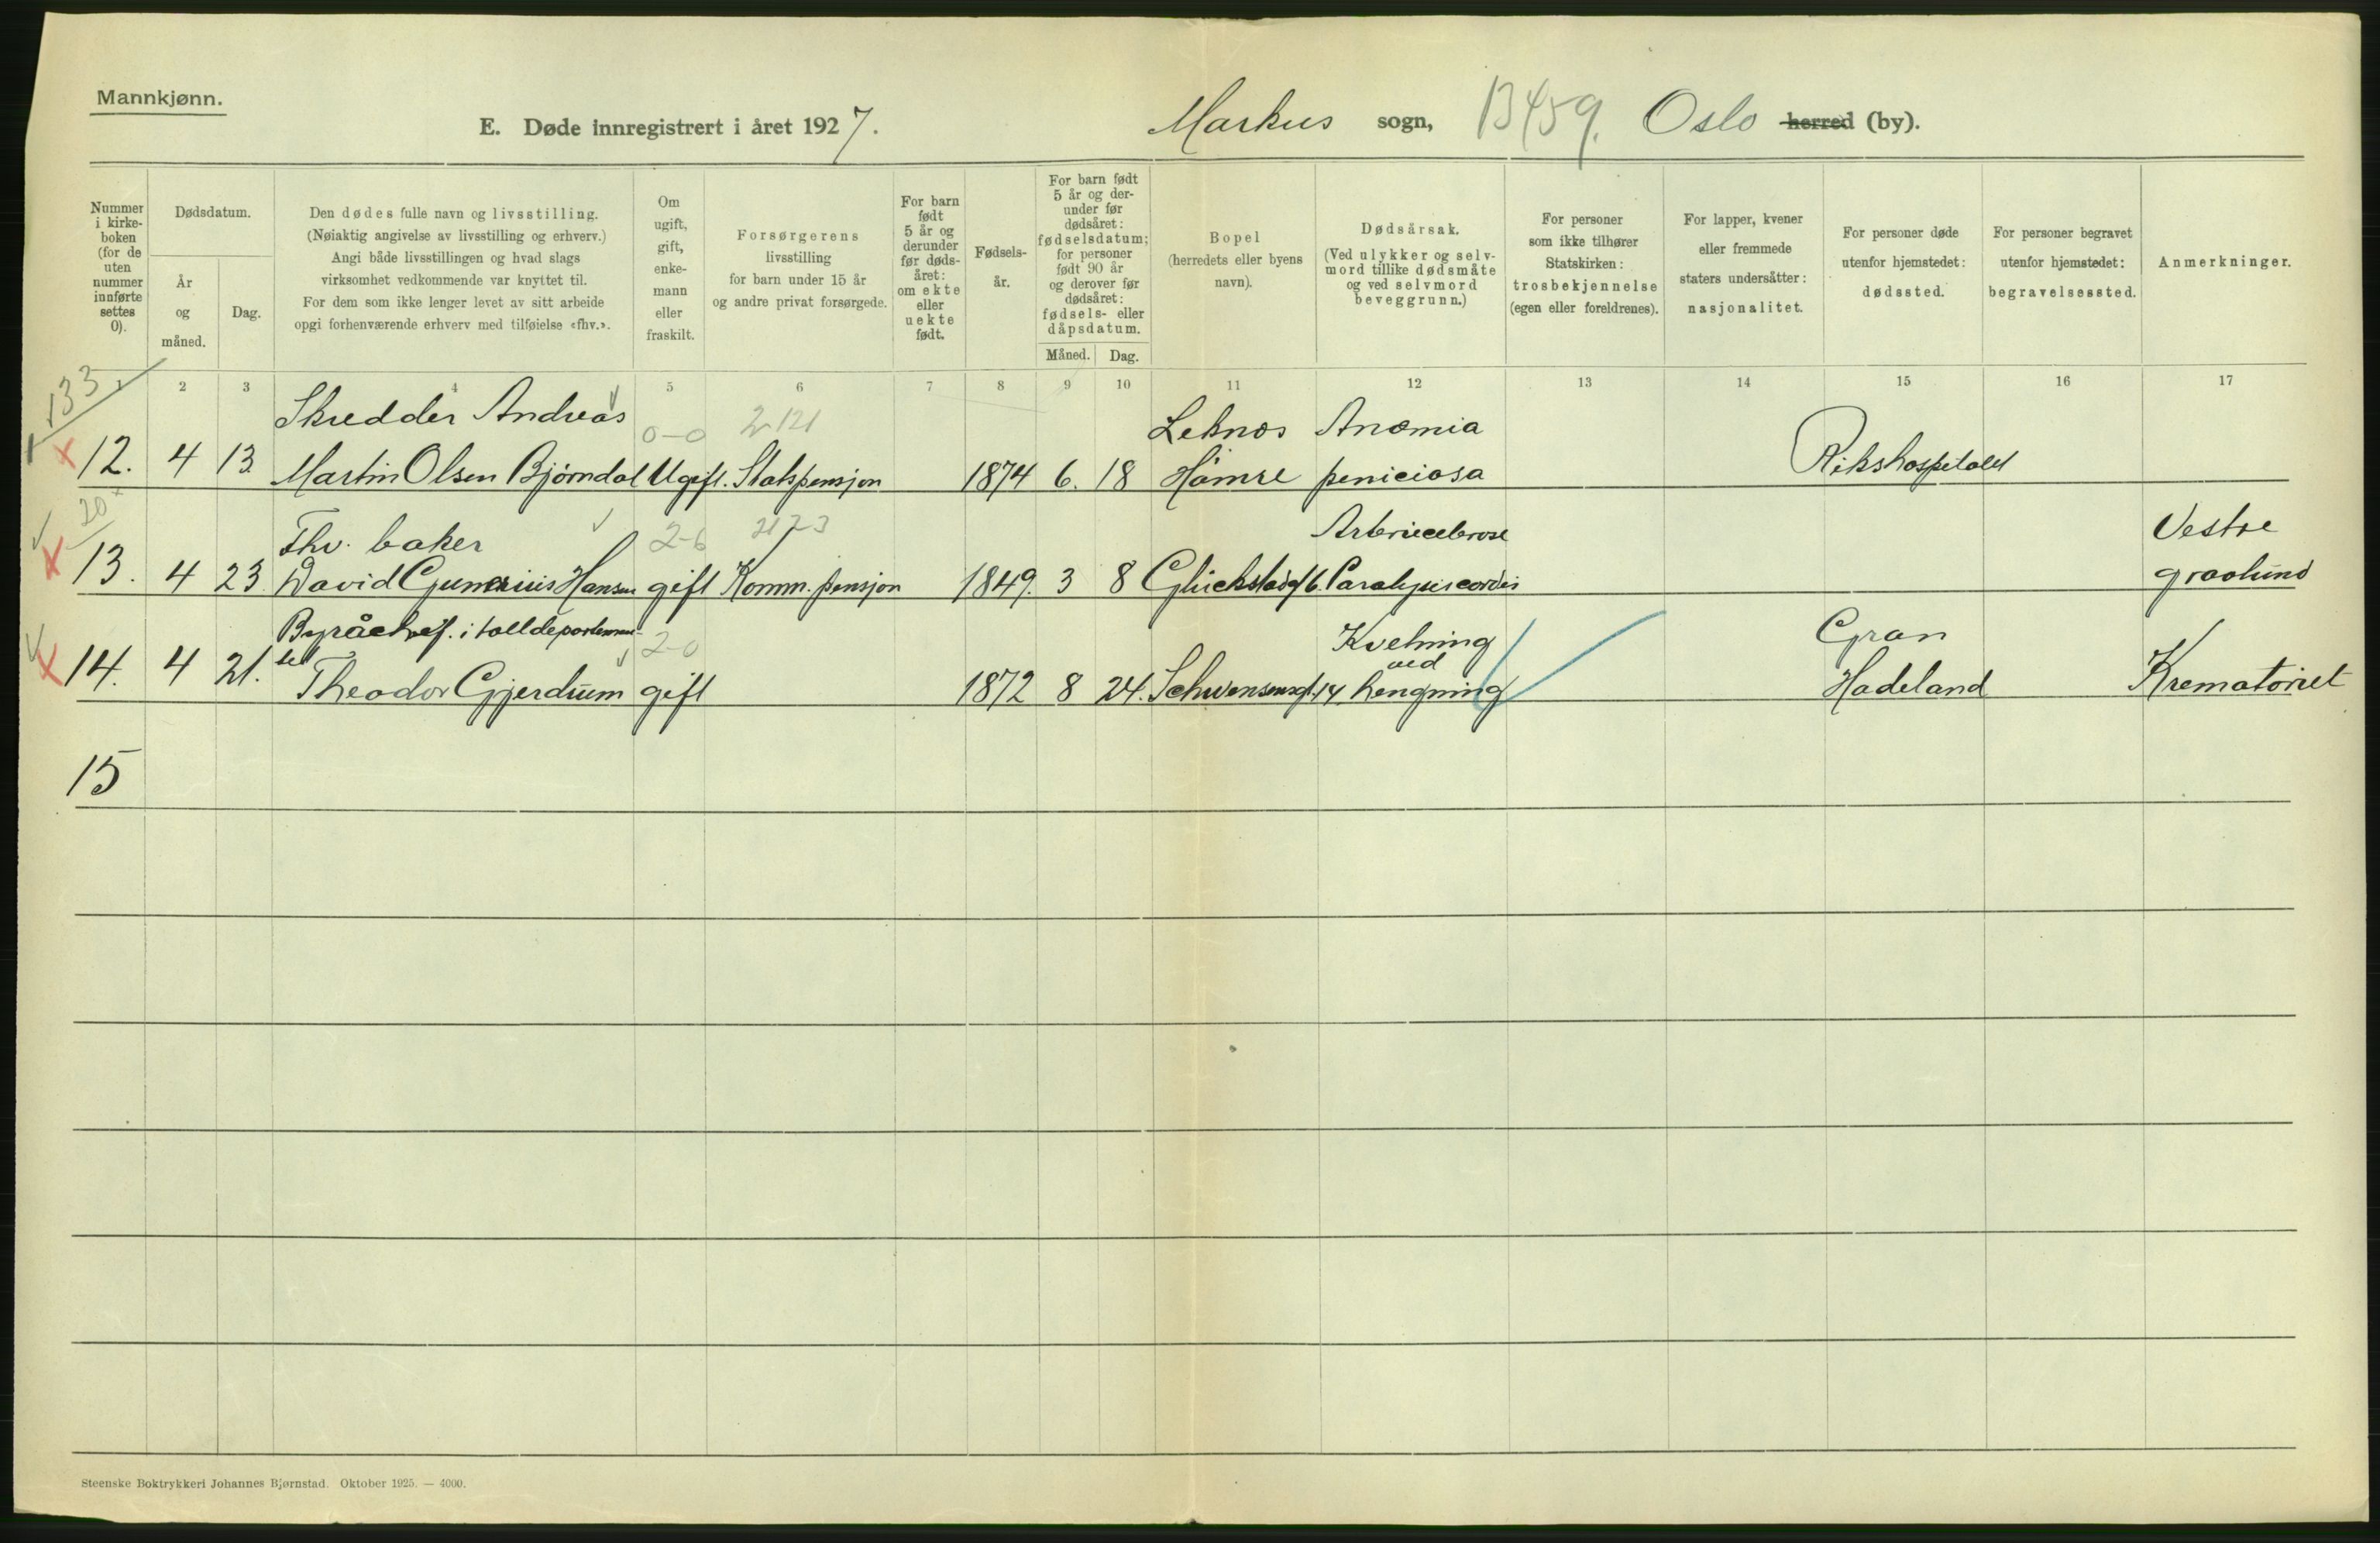 Mannkjønn.
E. Døde innregistrert i året 1927.
Markus sogn, 13459. Oslo herred (by).
Nummer i kirke- boken (for de uten nummer innførte settes 0).
Dødsdatum.
År og måned.
Dag.
Den dødes fulle navn og livsstilling.
(Nøiaktig angivelse av livsstilling og erhverv.)
Angi både livsstillingen og hvad slags
virksomhet vedkommende var knyttet til.
For dem som ikke lenger levet av sitt arbeide
opgi forhenværende erhverv med tilføielse «fhv.».
Om ugift, gift, enke- mann eller fraskilt.
Forsørgerens
livsstilling
for barn under 15 år
og andre privat forsørgede.
For barn født 5 år og derunder før døds- året: om ekte eller uekte født.
Fødsels- år.
For barn født 5 år og der- under før dødsåret: fødselsdatum; for personer født 90 år og derover før dødsåret: fødsels- eller dåpsdatum.
Måned. Dag.
Bopel
(herredets eller byens
navn).
Dødsårsak.
(Ved ulykker og selv-
mord tillike dødsmåte
og ved selvmord
beveggrunn.)
For personer
som ikke tilhører
Statskirken:
trosbekjennelse
(egen eller foreldrenes).
For lapper, kvener
eller fremmede
staters undersåtter:
nasjonalitet.
For personer døde
utenfor hjemstedet:
dødssted.
For personer begravet
utenfor hjemstedet:
begravelsessted.
Anmerkninger.
2 3 4 5 6 7 8 9 10 11 12 13 14 15 16 17
133
Skredder Andreas 0-0 2121 Leknes Anæmia
12. 4 13 Martin Olsen Bjørndal Ugift. Statspensjon 1874 6. 18 Hamre peniciosa Rikshospitalet
20
Fhv. baker 2-6 2173 Vestre
13. 4 23 David Gunerius Hansen gift Komm. pensjon 1849. 3 8 Glückstadgt 6. Paralysis cordis gravlund
Byråchef. i tolldepartemen- 2-0 Kvelning Gran
tet ved
14. 4 21. Theodor Gjerdrum gift 1872 8 24. Schwensensgt. 14 hengning Hadeland Krematoriet
15
Steenske Boktrykkeri Johannes Bjørnstad. Oktober 1925. — 4000.